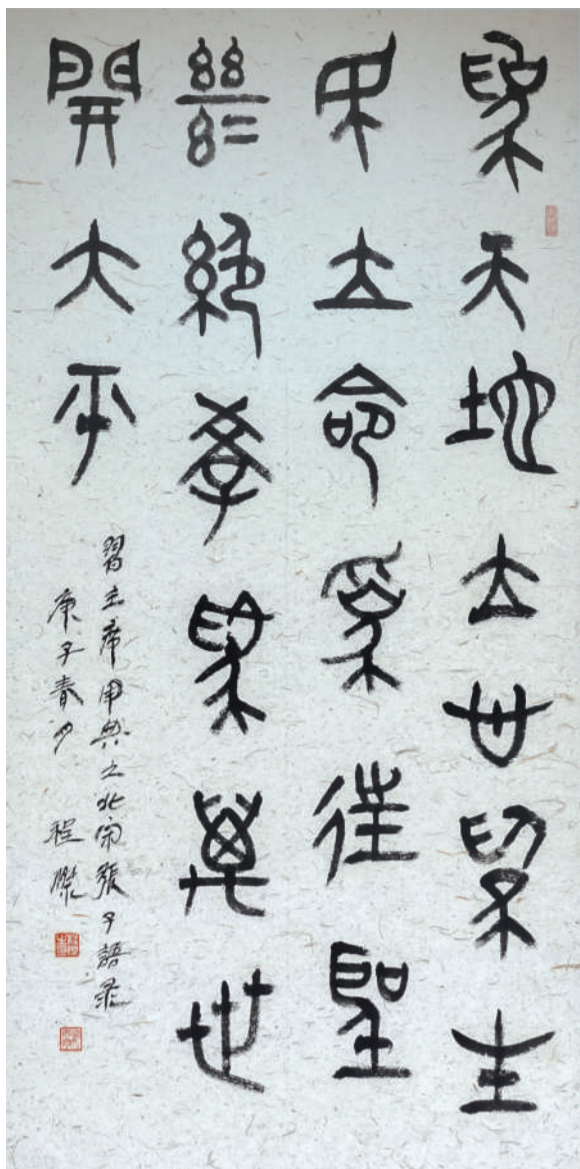 為天地立心為生
民立命為往聖
繼絕學為萬世
開大平
習主席用典之北宋張子語录
庚子春月 程傑